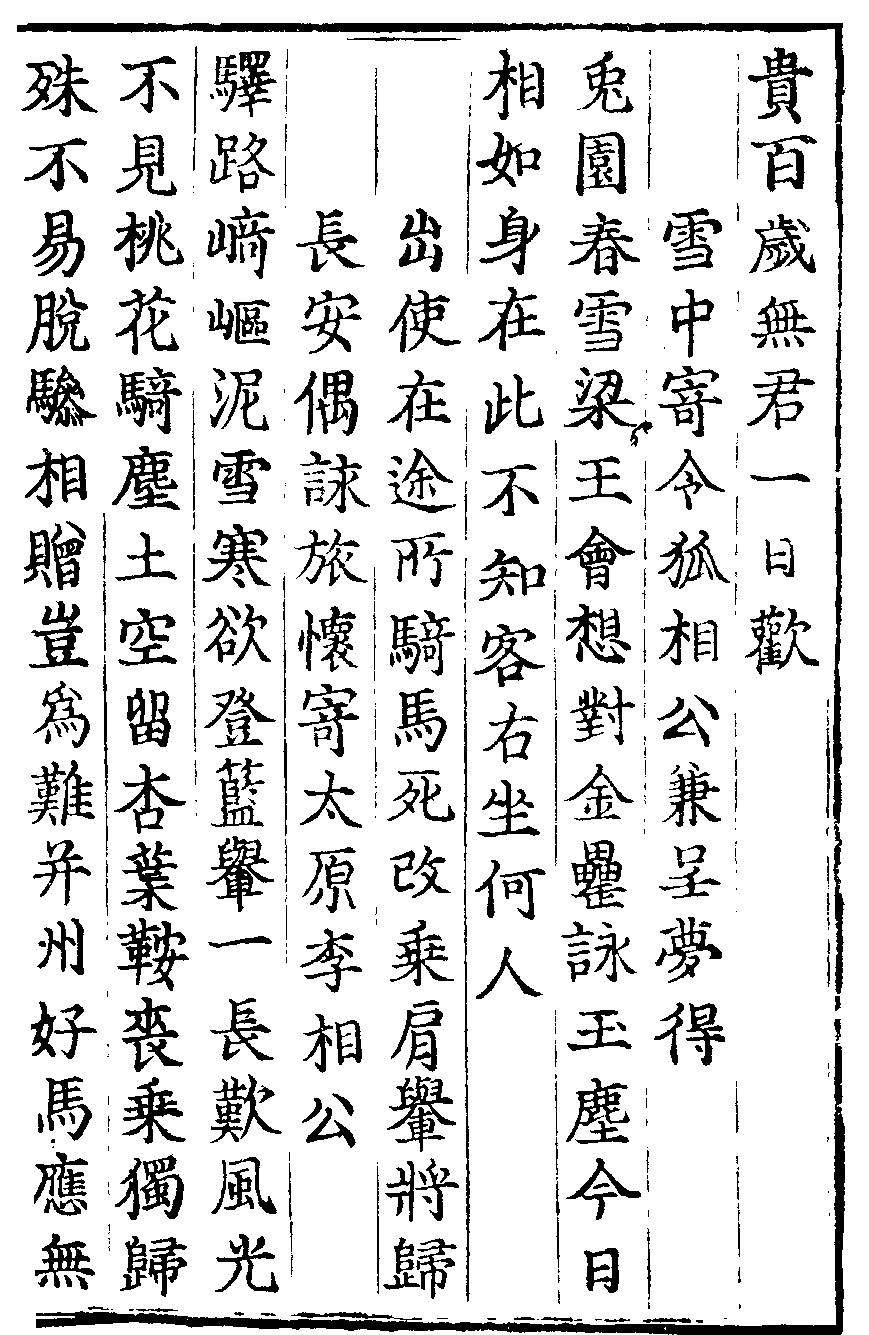 貴百歲無君一日歡
雪中寄令狐相公兼呈夢得
兎園春雪梁王會想對金罍詠玉塵今日
相如身在此不知客右坐何人
出使在途所騎馬死改乗肩轝將歸
長安偶詠旅懷寄太原李相公
驛路崎嶇泥雪寒欲登藍轝一長歎風光
不見桃花騎塵土空留杏葉鞍喪乗獨歸
殊不易脫驂相贈豈爲難并州好馬應無